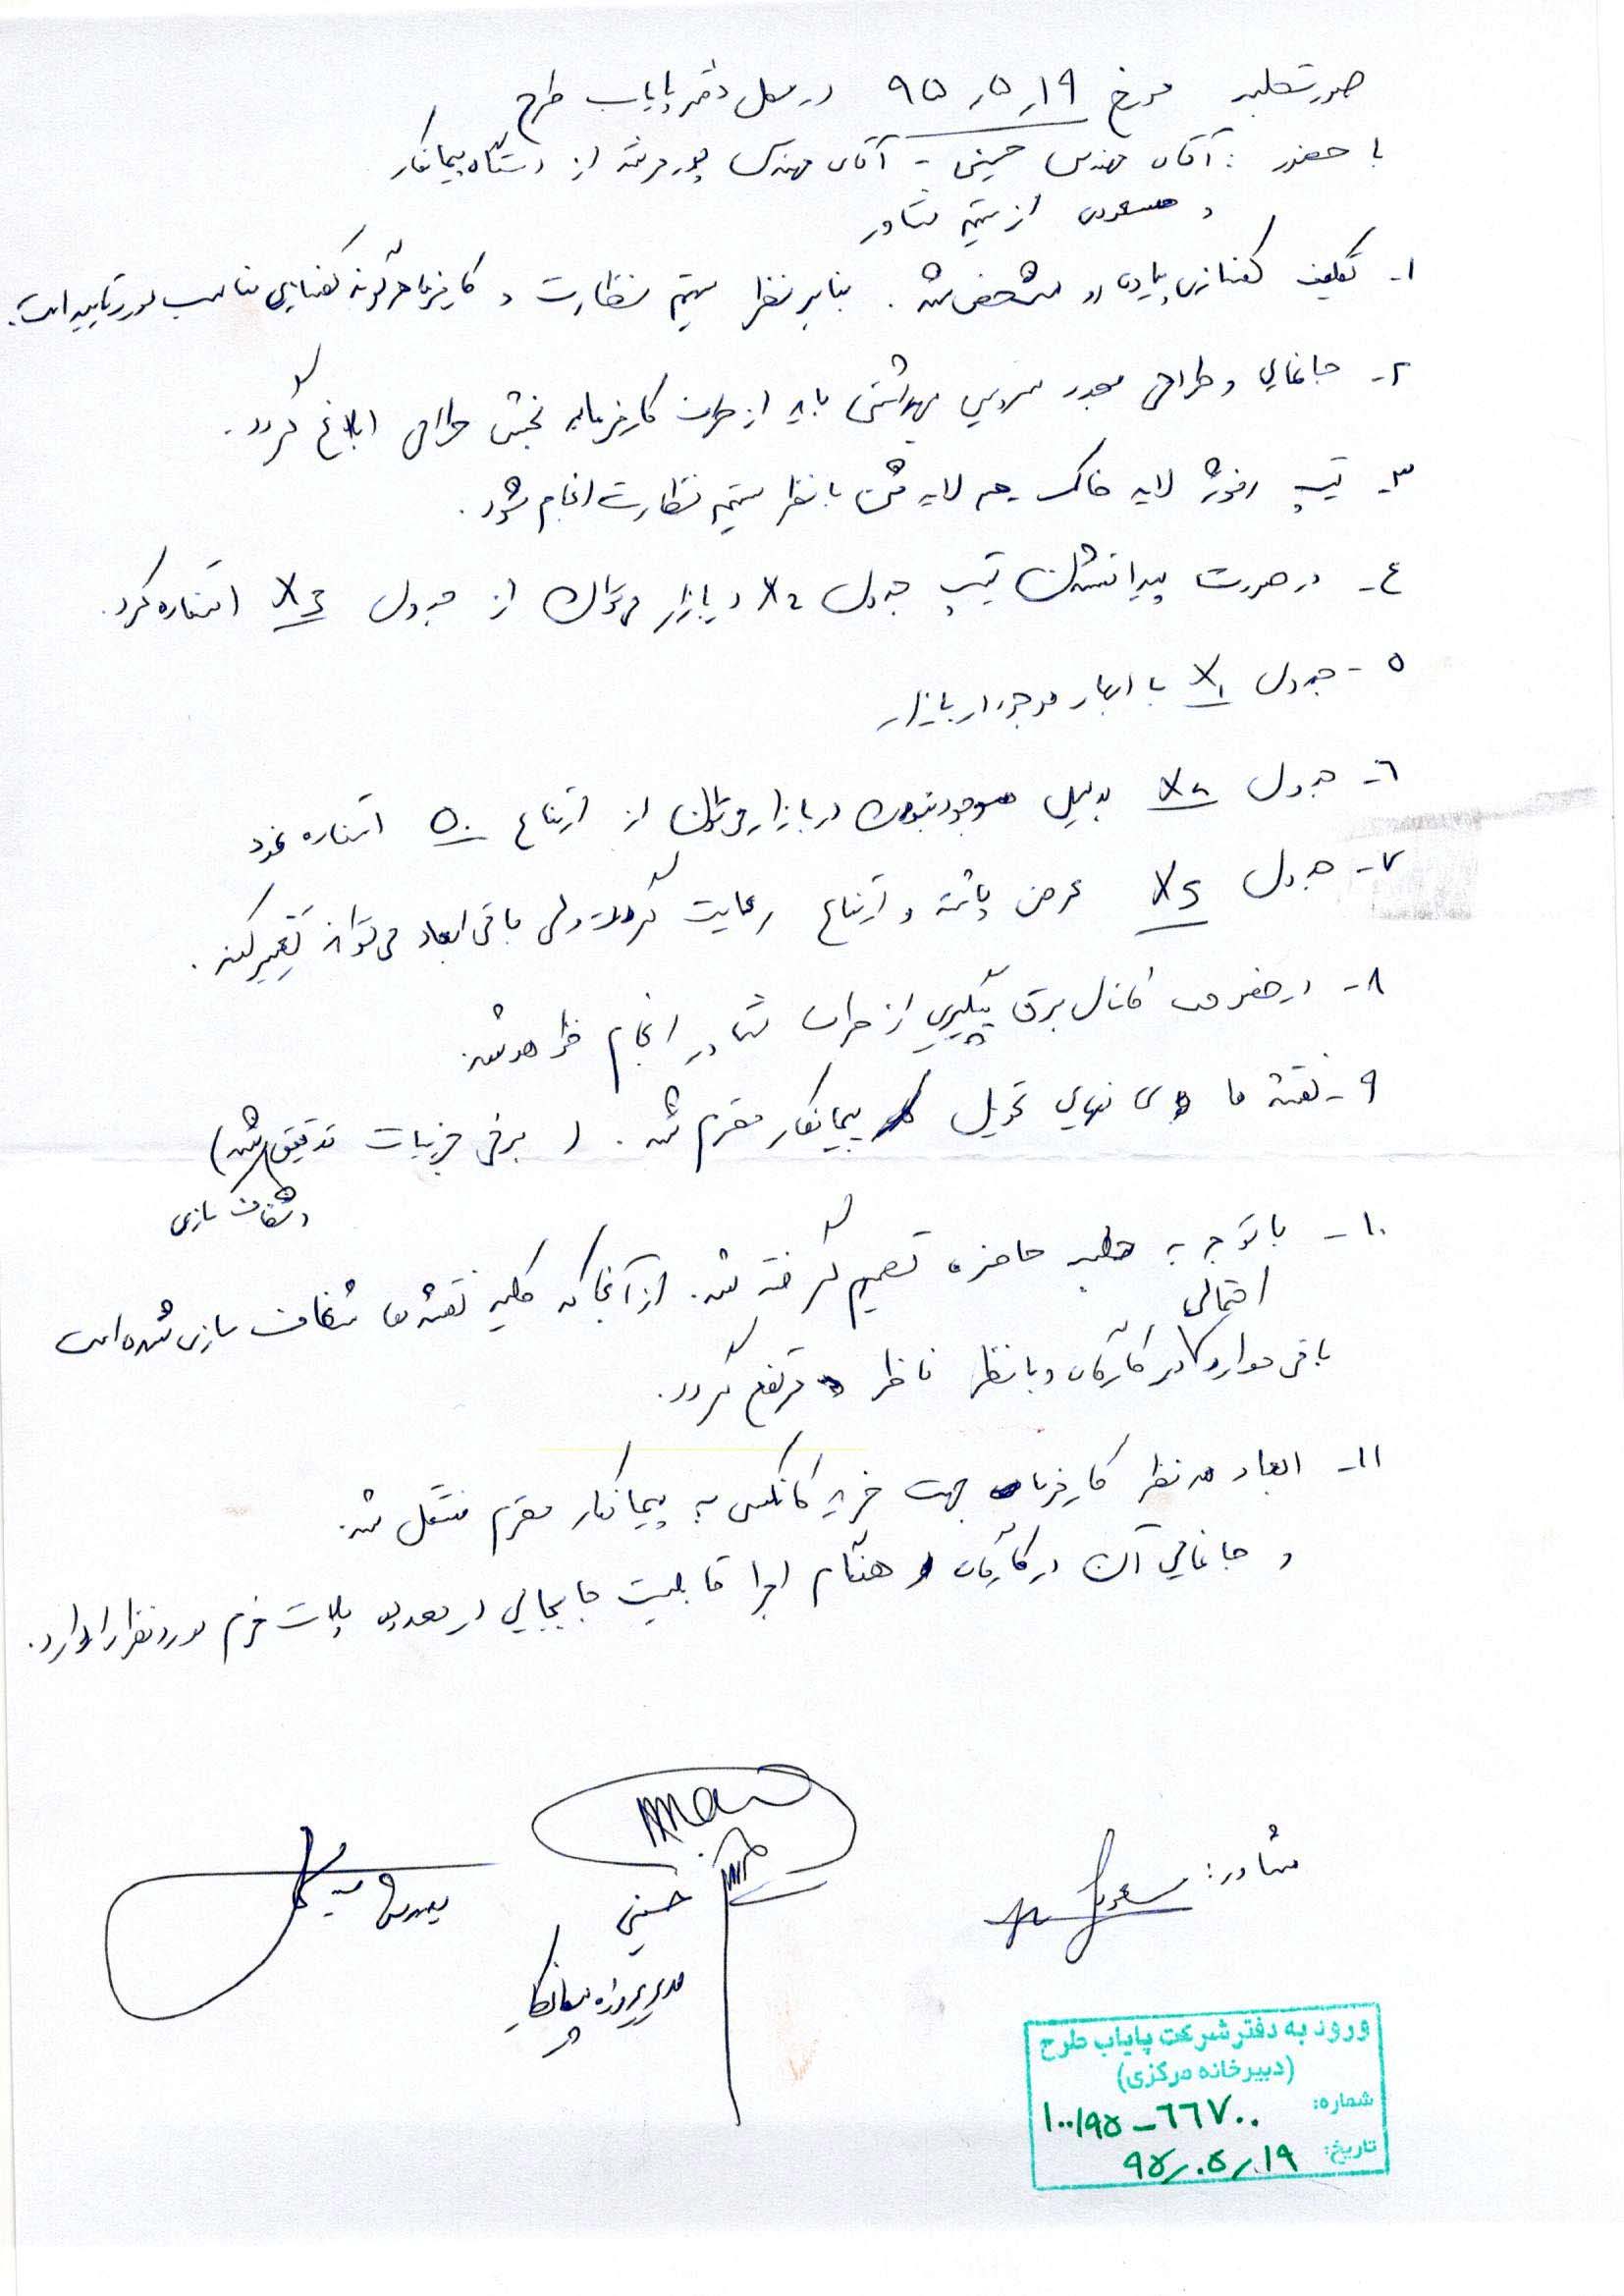 صورتجلسه مورخ ۹۵٫۵٫۱۹ در محل دفتر پایاب طرح
با حضور : آقای مهندس حسینی - آقای مهندس از دستگاه پیمانکار
و مسعودی از مشاور
۱- تکلیف کفسازی پیاده رو مشخص شد . بنابر نظر تیم نظارت و کارفرما هرگونه کفسازی مناسب مورد تایید است.
۲- جانمایی و طراحی مجدد سرویس بهداشتی باید از طرف کارفرما به بخش طراحی ابلاغ گردد .
۳- تیپ رفوژ لایه خاک لایه شن با نظر تیم نظارت انجام شود .
٤- در صورت پیدا نشدن تیپ جدول X2 در بازار می‌توان از جدول X3 استفاده کرد .
۵- جدول X1 با ابعاد موجود در بازار
٦- جدول بدلیل موجود نبودن در بازار می‌توان از ارتفاع ۵۰ استفاده نمود
۷- جدول X5 عرض پاشنه و ارتفاع رعایت گردد ولی باقی ابعاد می‌تواند تغییر کند .
۸- در خصوص کانال برق پیگیری از طرف مشاور انجام خواهد شد.
۹- نقشه ها ی نهایی تحویل پیمانکار محترم شد . ( برخی جزییات تدقیق شد)
و شفاف سازی
۱۰- با توجه به جلسه حاضر تصمیم گرفته شد. از آنجا که کلیه نقشه ها شفاف سازی شده است
احتمالی
باقی موارد در کارگاه و با نظر ناظر مرتفع گردد.
۱۱- ابعاد مد نظر کارفرما جهت خرید کانکس به پیمانکار محترم منتقل شد.
و جانمایی آن در کارگاه هنگام اجرا قابلیت جابجایی در محدوده پلات فرم مورد نظر را دارد.
مشاور: مسعودی
حسینی
مدیر پروژه پیمانکار
ورود به دفتر شرکت پایاب طرح
(دبیرخانه مرکزی)
شماره: ۱۰۰/۹۵-٦٦۷۰۰
تاریخ: ۹۵٫۰۵٫۱۹